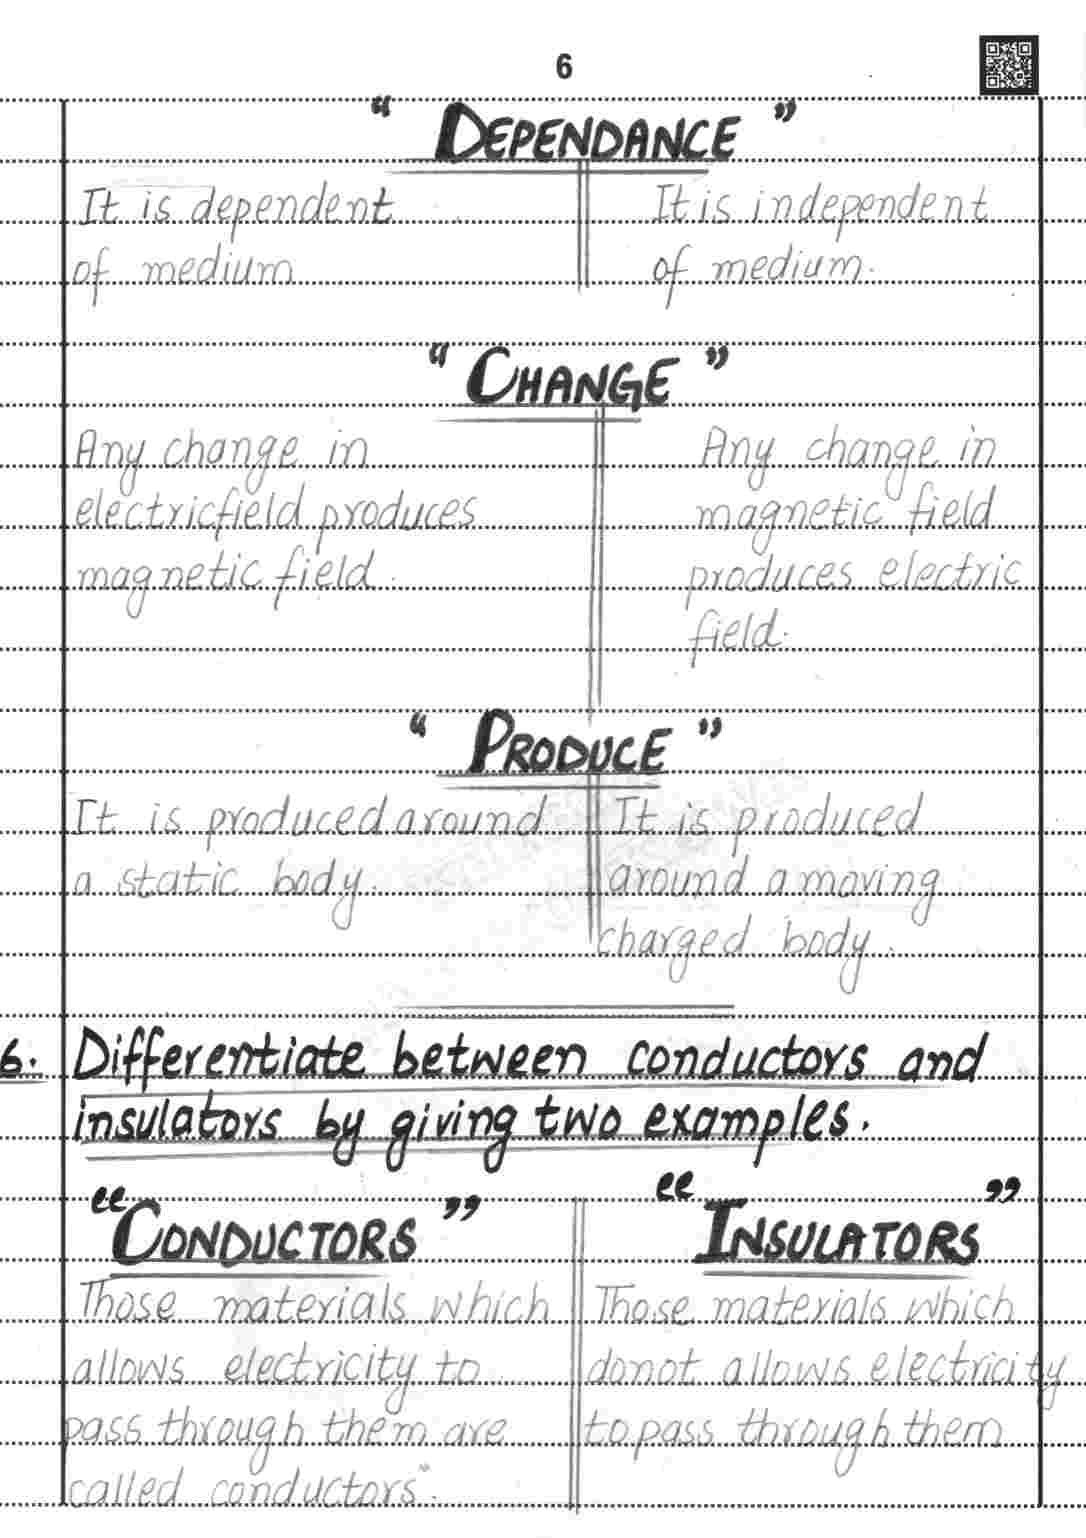 6
" DEPENDANCE "
It is dependent
of medium
It is independent
of medium.
" CHANGE "
Any change in
electricfield produces
magnetic field.
Any change in
magnetic field
produces electric
field.
" PRODUCE "
It is produced around
a static body.
It is produced
around a moving
charged body.
6. Differentiate between conductors and
insulators by giving two examples.
"CONDUCTORS"
Those materials which
allows electricity to
pass through them are
called conductors".
" INSULATORS "
Those materials which
donot allows electricity
to pass through them